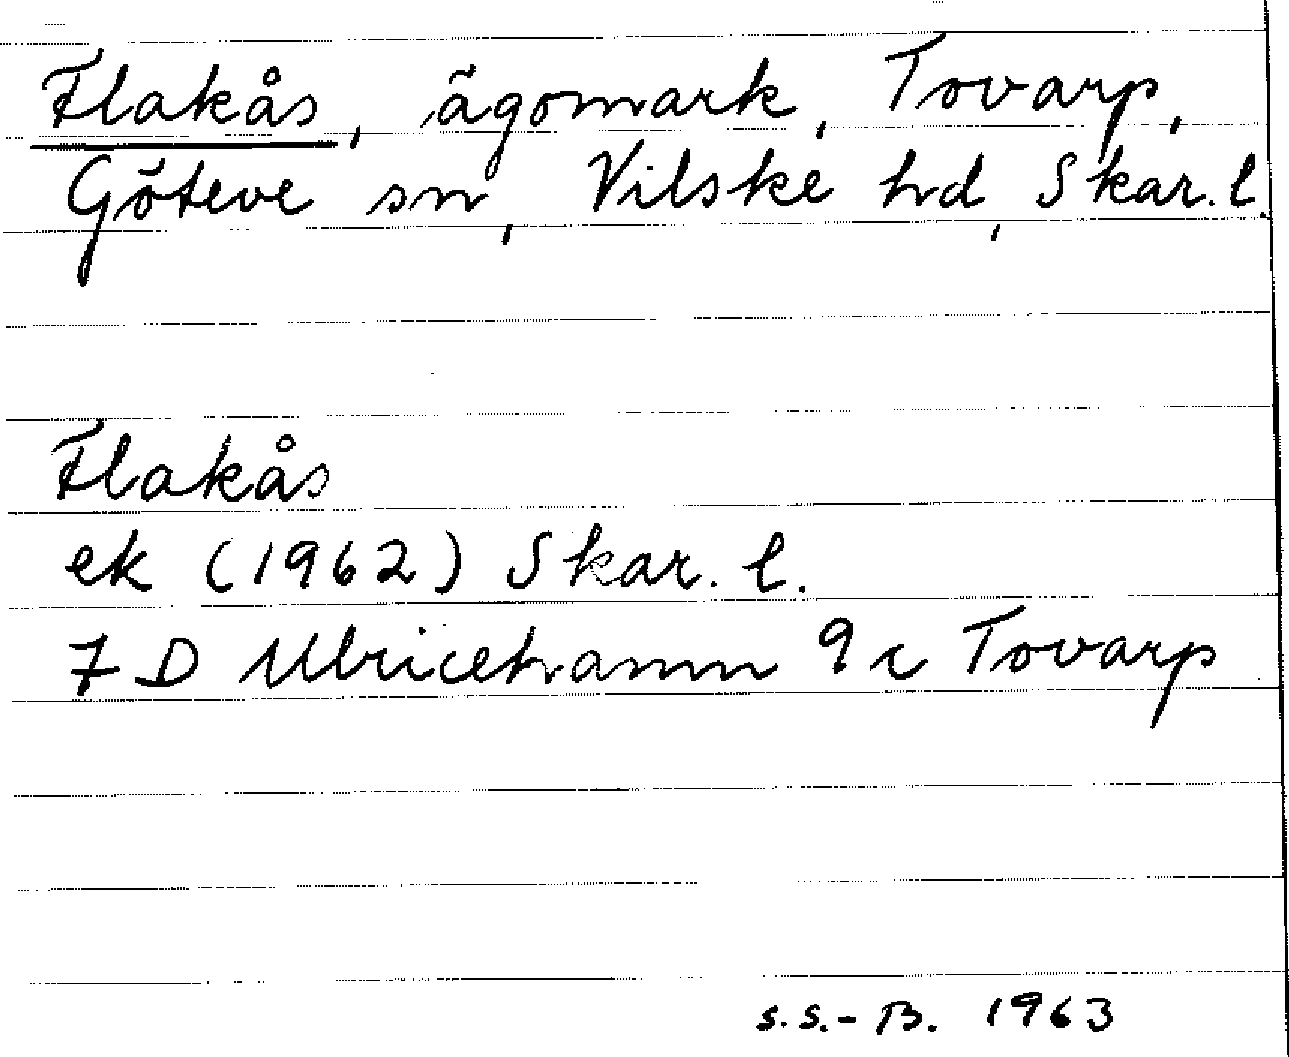 Flakås, ägomark, Tovarp,
Göteve sn, Vilske hd, Skar. l.
Flakås
ek (1962) Skar. l.
7 D Ulricehamn 9 c Tovarp
S.S.-B. 1963